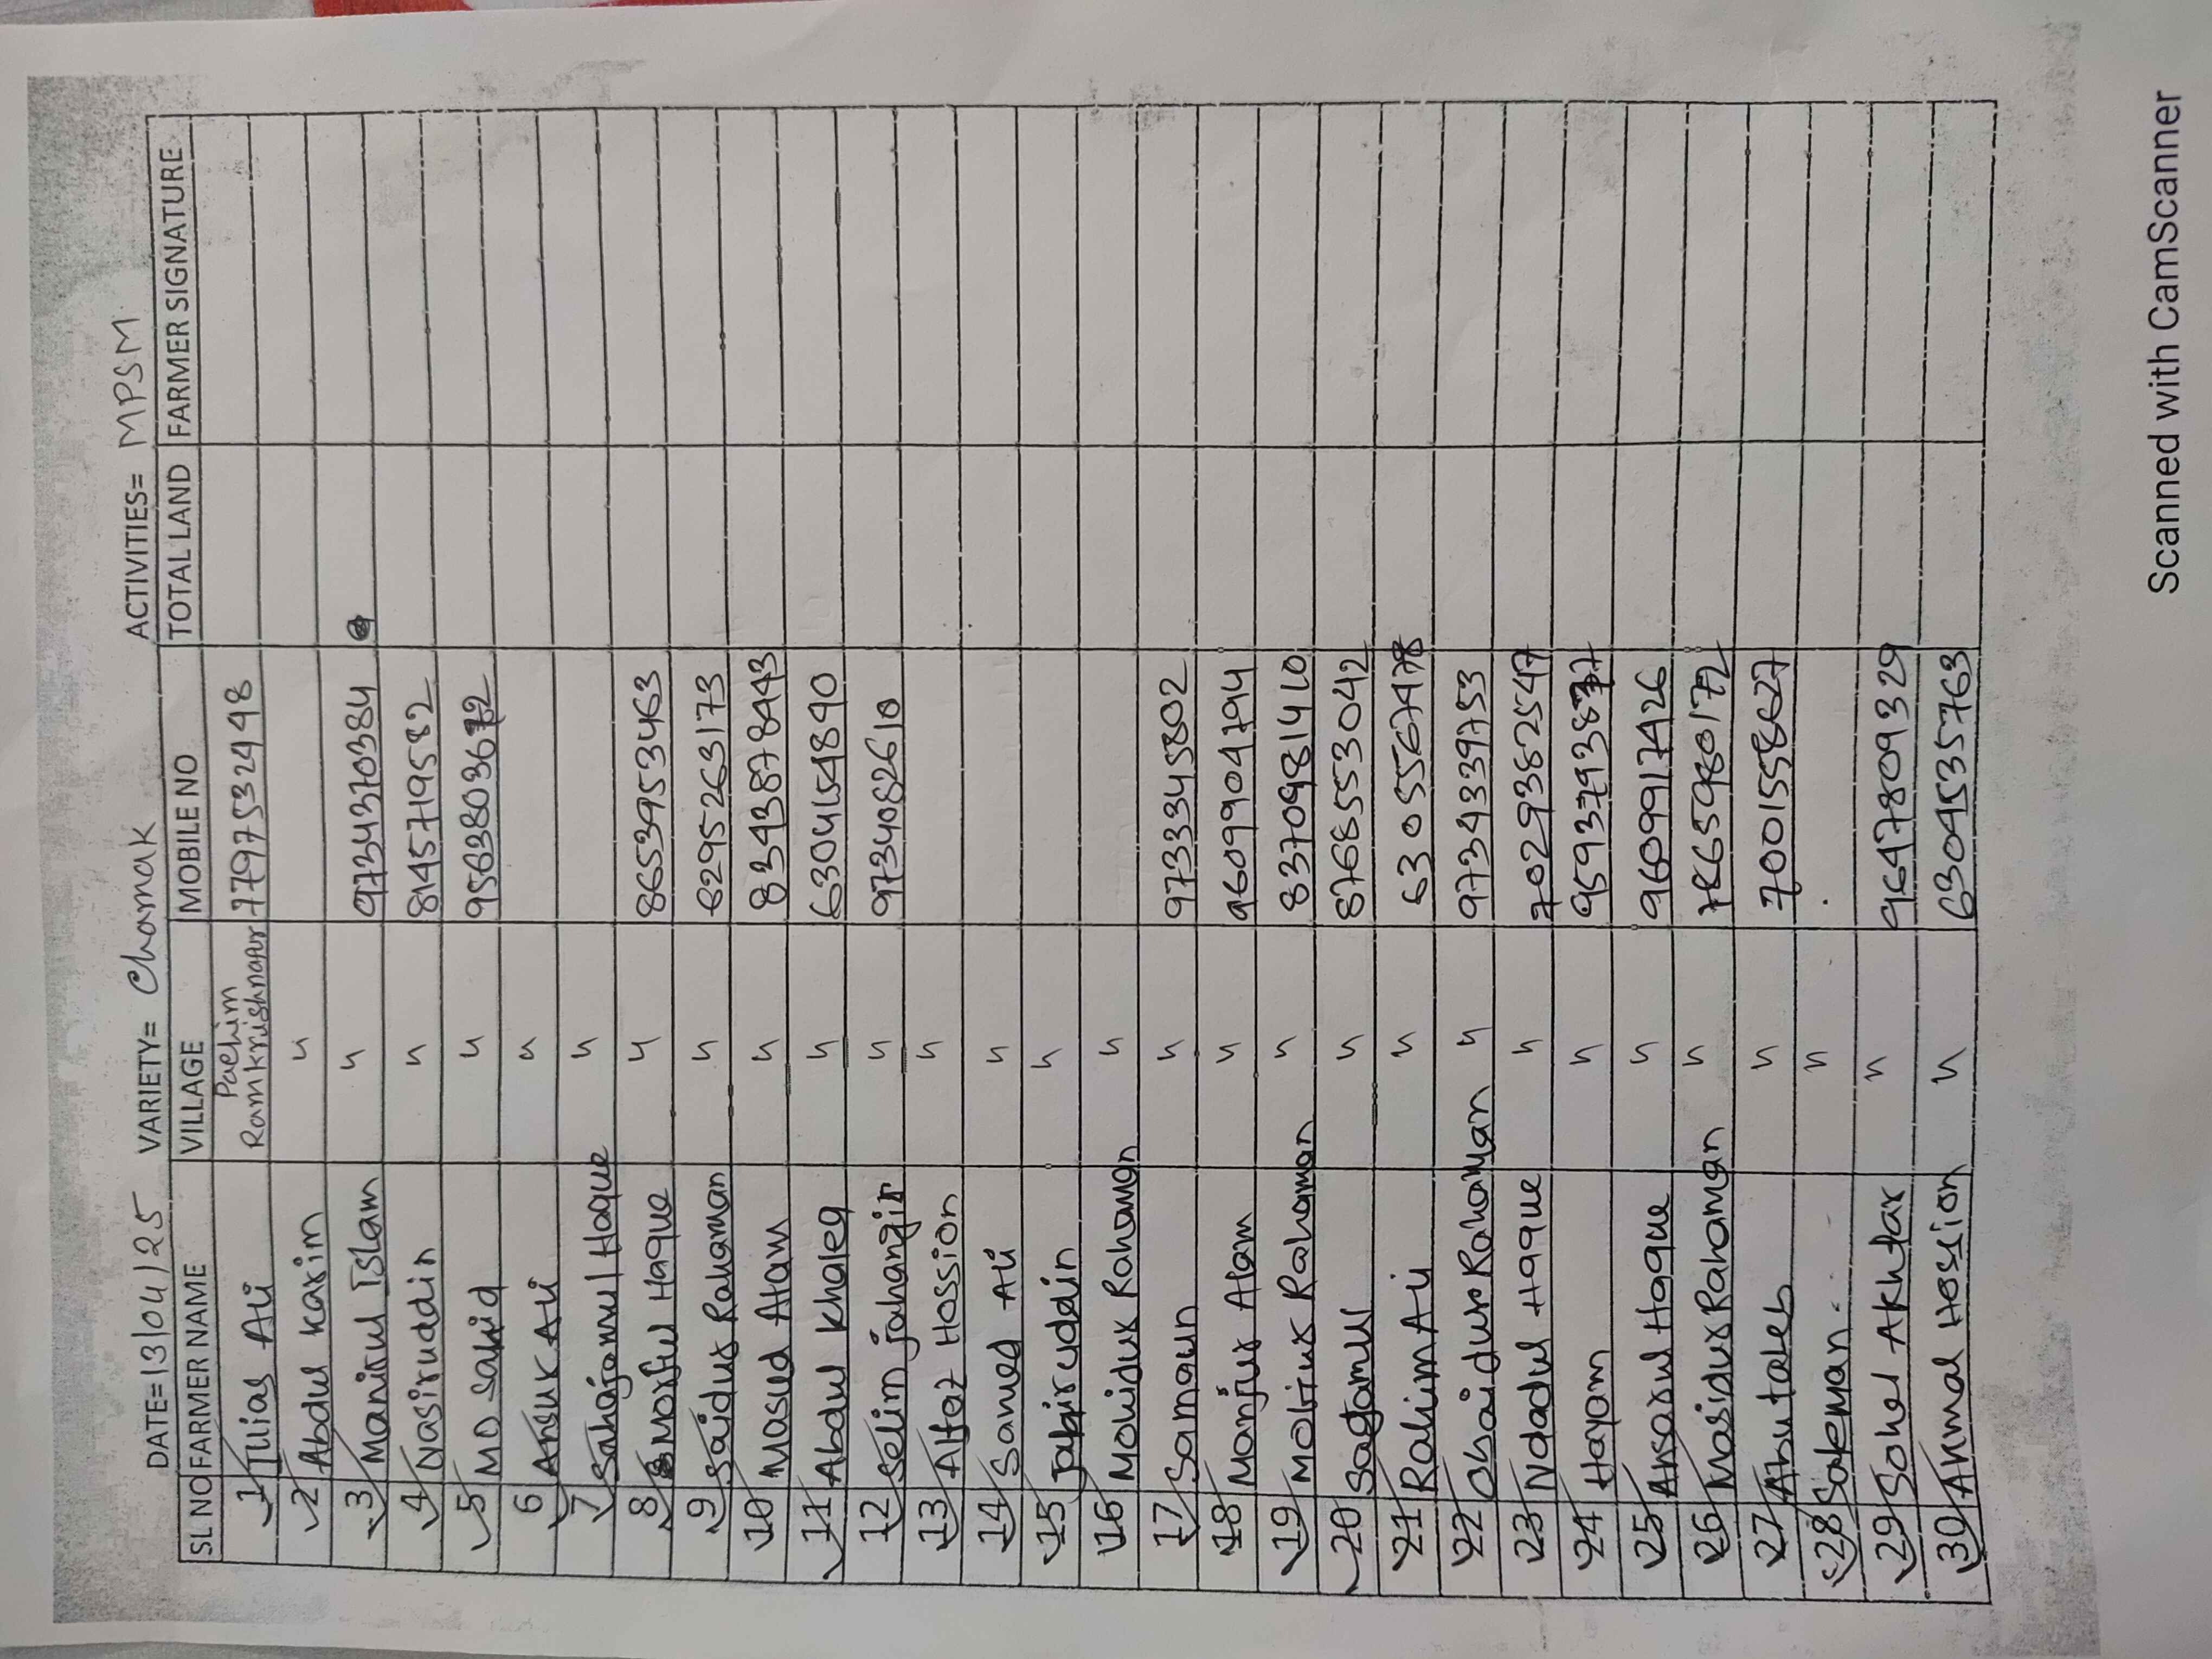 DATE=13/04/25 VARIETY= Chamak ACTIVITIES= MPSM
SL NO FARMER NAME VILLAGE MOBILE NO TOTAL LAND FARMER SIGNATURE
1 Illias Ali Pachim Ramkrishnapur 7797532498
2 Abdul Karim "
3 Manirul Islam " 9734370384
4 Nasiruddin " 8145719582
5 MD Sahid " 9563803672
6 Ansur Ali "
7 Sahajamul Haque "
8 Smorful Haque " 8653953463
9 Saidur Rahaman " 6295263173
10 Masud Alam " 8343878443
11 Abdul Khaleq " 6304154890
12 Selim jahangir " 9734082610
13 Alfaz Hossion "
14 Samed Ali "
15 Jabiruddin "
16 Mohidur Rahaman "
17 Samaun " 9733345802
18 Manjur Alam " 9609904794
19 Motiur Rahaman " 8370981410
20 Sagamul " 8768553042
21 Rahim Ali " 6305567478
22 Obaidur Rahaman " 9734339753
23 Ndadul Haque " 7029382547
24 Hayam " 9593793877
25 Ansarul Haque " 9609917426
26 Masidur Rahaman " 7865980172
27 Abutaleb " 7001558627
28 Soleman "
29 Sohel Akhtar " 9647809329
30 Anmal Hossion " 6304535763
Scanned with CamScanner